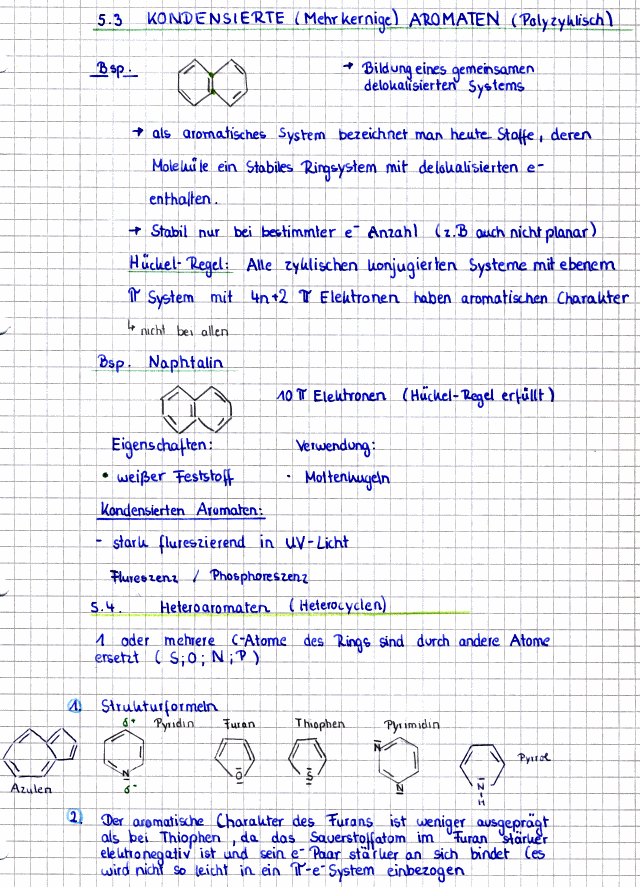 5.3 KONDENSIERTE (Mehrkernige) AROMATEN (Polyzyklisch)
Bsp.
→ Bildung eines gemeinsamen
delokalisierten Systems
→ als aromatisches System bezeichnet man heute Stoffe, deren
Moleküle ein Stabiles Ringsystem mit delokalisierten e-
enthalten.
→ Stabil nur bei bestimmter e⁻ Anzahl (z.B auch nicht planar)
Hückel-Regel: Alle zyklischen konjugierten Systeme mit ebenem
π System mit 4n+2 π Elektronen haben aromatischen Charakter
↳ nicht bei allen
Bsp. Naphtalin
10 π Elektronen (Hückel-Regel erfüllt)
Eigenschaften: Verwendung:
• weißer Feststoff · Mottenkugeln
Kondensierten Aromaten:
- stark flureszierend in UV-Licht
Flureszenz / Phosphoreszenz
5.4. Heteroaromaten (Heterocyclen)
1 oder mehrere C-Atome des Rings sind durch andere Atome
ersetzt (S; O; N; P)
1. Strukturformeln
δ+ Pyridin Furan Thiophen Pyrimidin
N O S N N Pyrrol
N
H
δ-
Azulen
2. Der aromatische Charakter des Furans ist weniger ausgeprägt
als bei Thiophen, da das Sauerstoffatom im Furan stärker
elektronegativ ist und sein e⁻ Paar stärker an sich bindet (es
wird nicht so leicht in ein π-e⁻System einbezogen